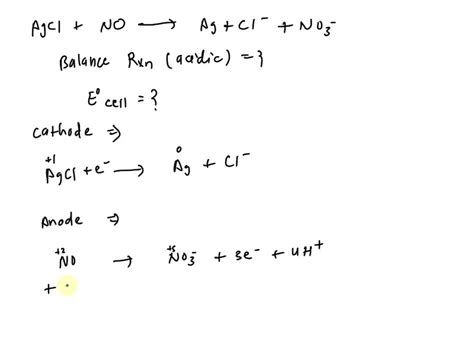 AgCl + NO ⟶ Ag + Cl⁻ + NO₃⁻
Balance Rxn (acidic) = ?
E° cell = ?
Cathode ⇒
+1 0
AgCl + e⁻ ⟶ Ag + Cl⁻
Anode ⇒
+2 +5
NO ⟶ NO₃⁻ + 3e⁻ + 4H⁺
+